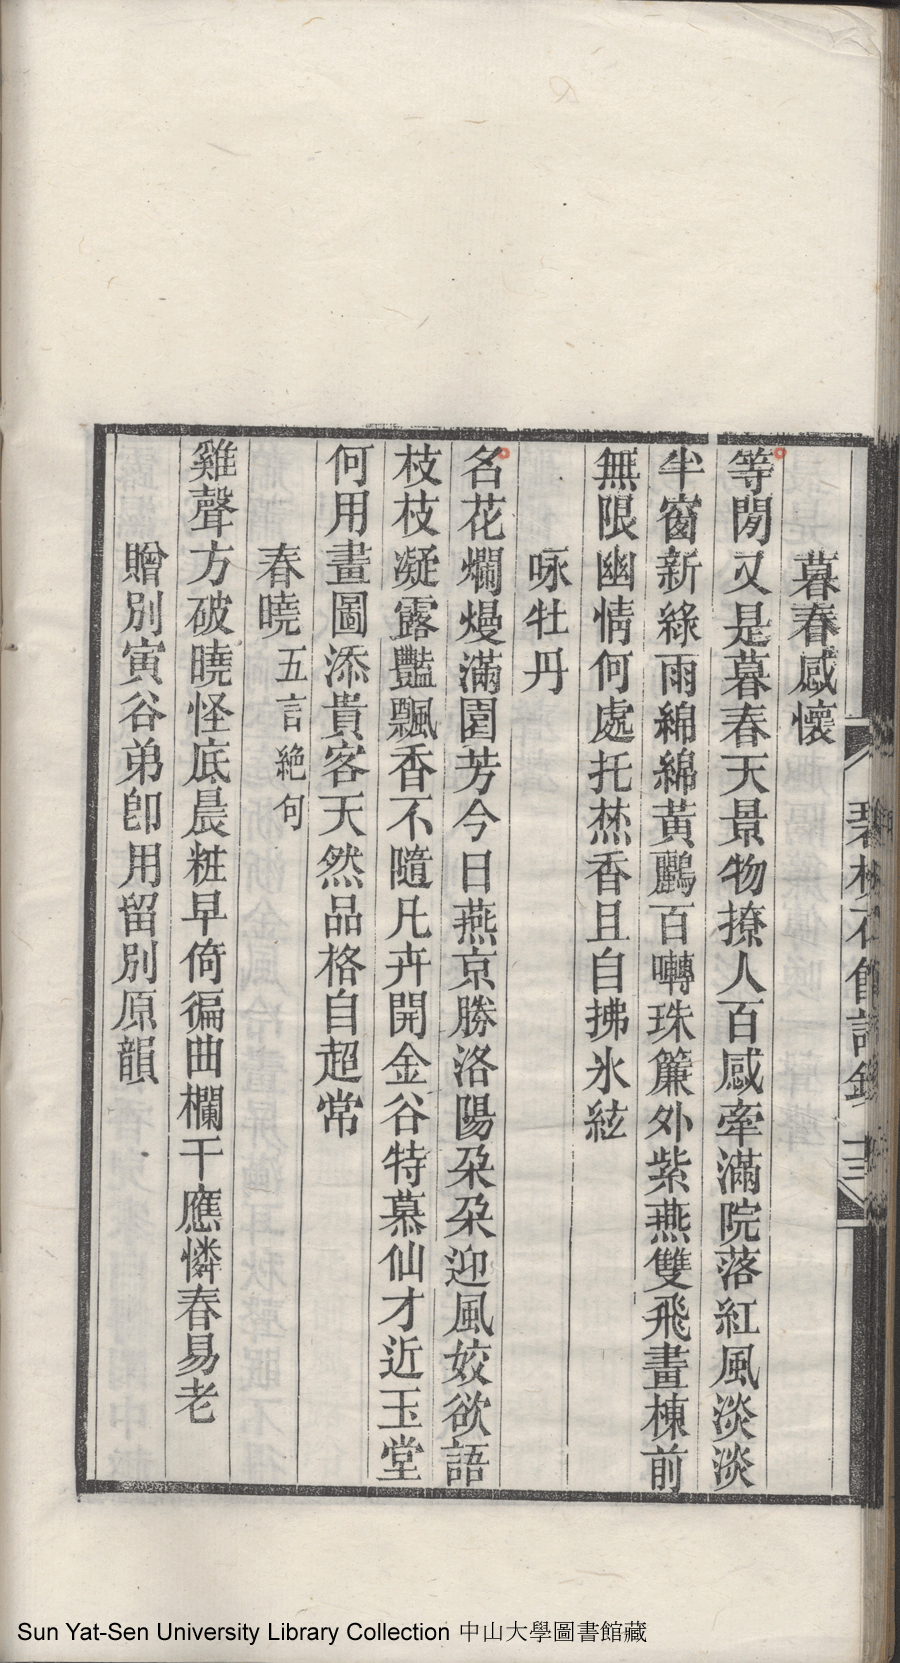 暮春感懷
等閒又是暮春天景物撩人百感牽滿院落紅風淡淡
半窗新綠雨綿綿黃鸝百囀珠簾外紫燕雙飛畫棟前
無限幽情何處托焚香且自拂氷絃
咏牡丹
名花爛熳滿園芳今日燕京勝洛陽朶朶迎風姣欲語
枝枝凝露豔飄香不隨凡卉開金谷特慕仙才近玉堂
何用畫圖添貴客天然品格自超常
春曉五言絶句
雞聲方破曉怪底晨粧早倚徧曲欄干應憐春易老
贈別寅谷弟卽用留別原韻
Sun Yat-Sen University Library Collection 中山大學圖書館藏